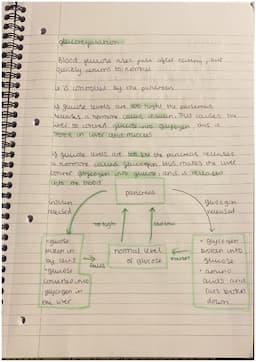 glucoregulation
Blood glucose rises just after eating, but
quickly returns to normal
is controlled by the pancreas
if glucose levels are too high the pancreas
releases a hormone called insulin. This causes the
liver to convert glucose into glycogen and is
stored in liver and muscles
if glucose levels are too low the pancreas releases
a hormone called glucagon. this causes the liver
convert glycogen into glucose and is released
into the blood
pancreas
insulin
released
glucagon
released
too high
too low
• glucose
taken in
by cells
• glucose
converted into
glycogen in
the liver
normal level
of glucose
• glycogen
broken into
glucose
• amino
acids and
fats broken
down